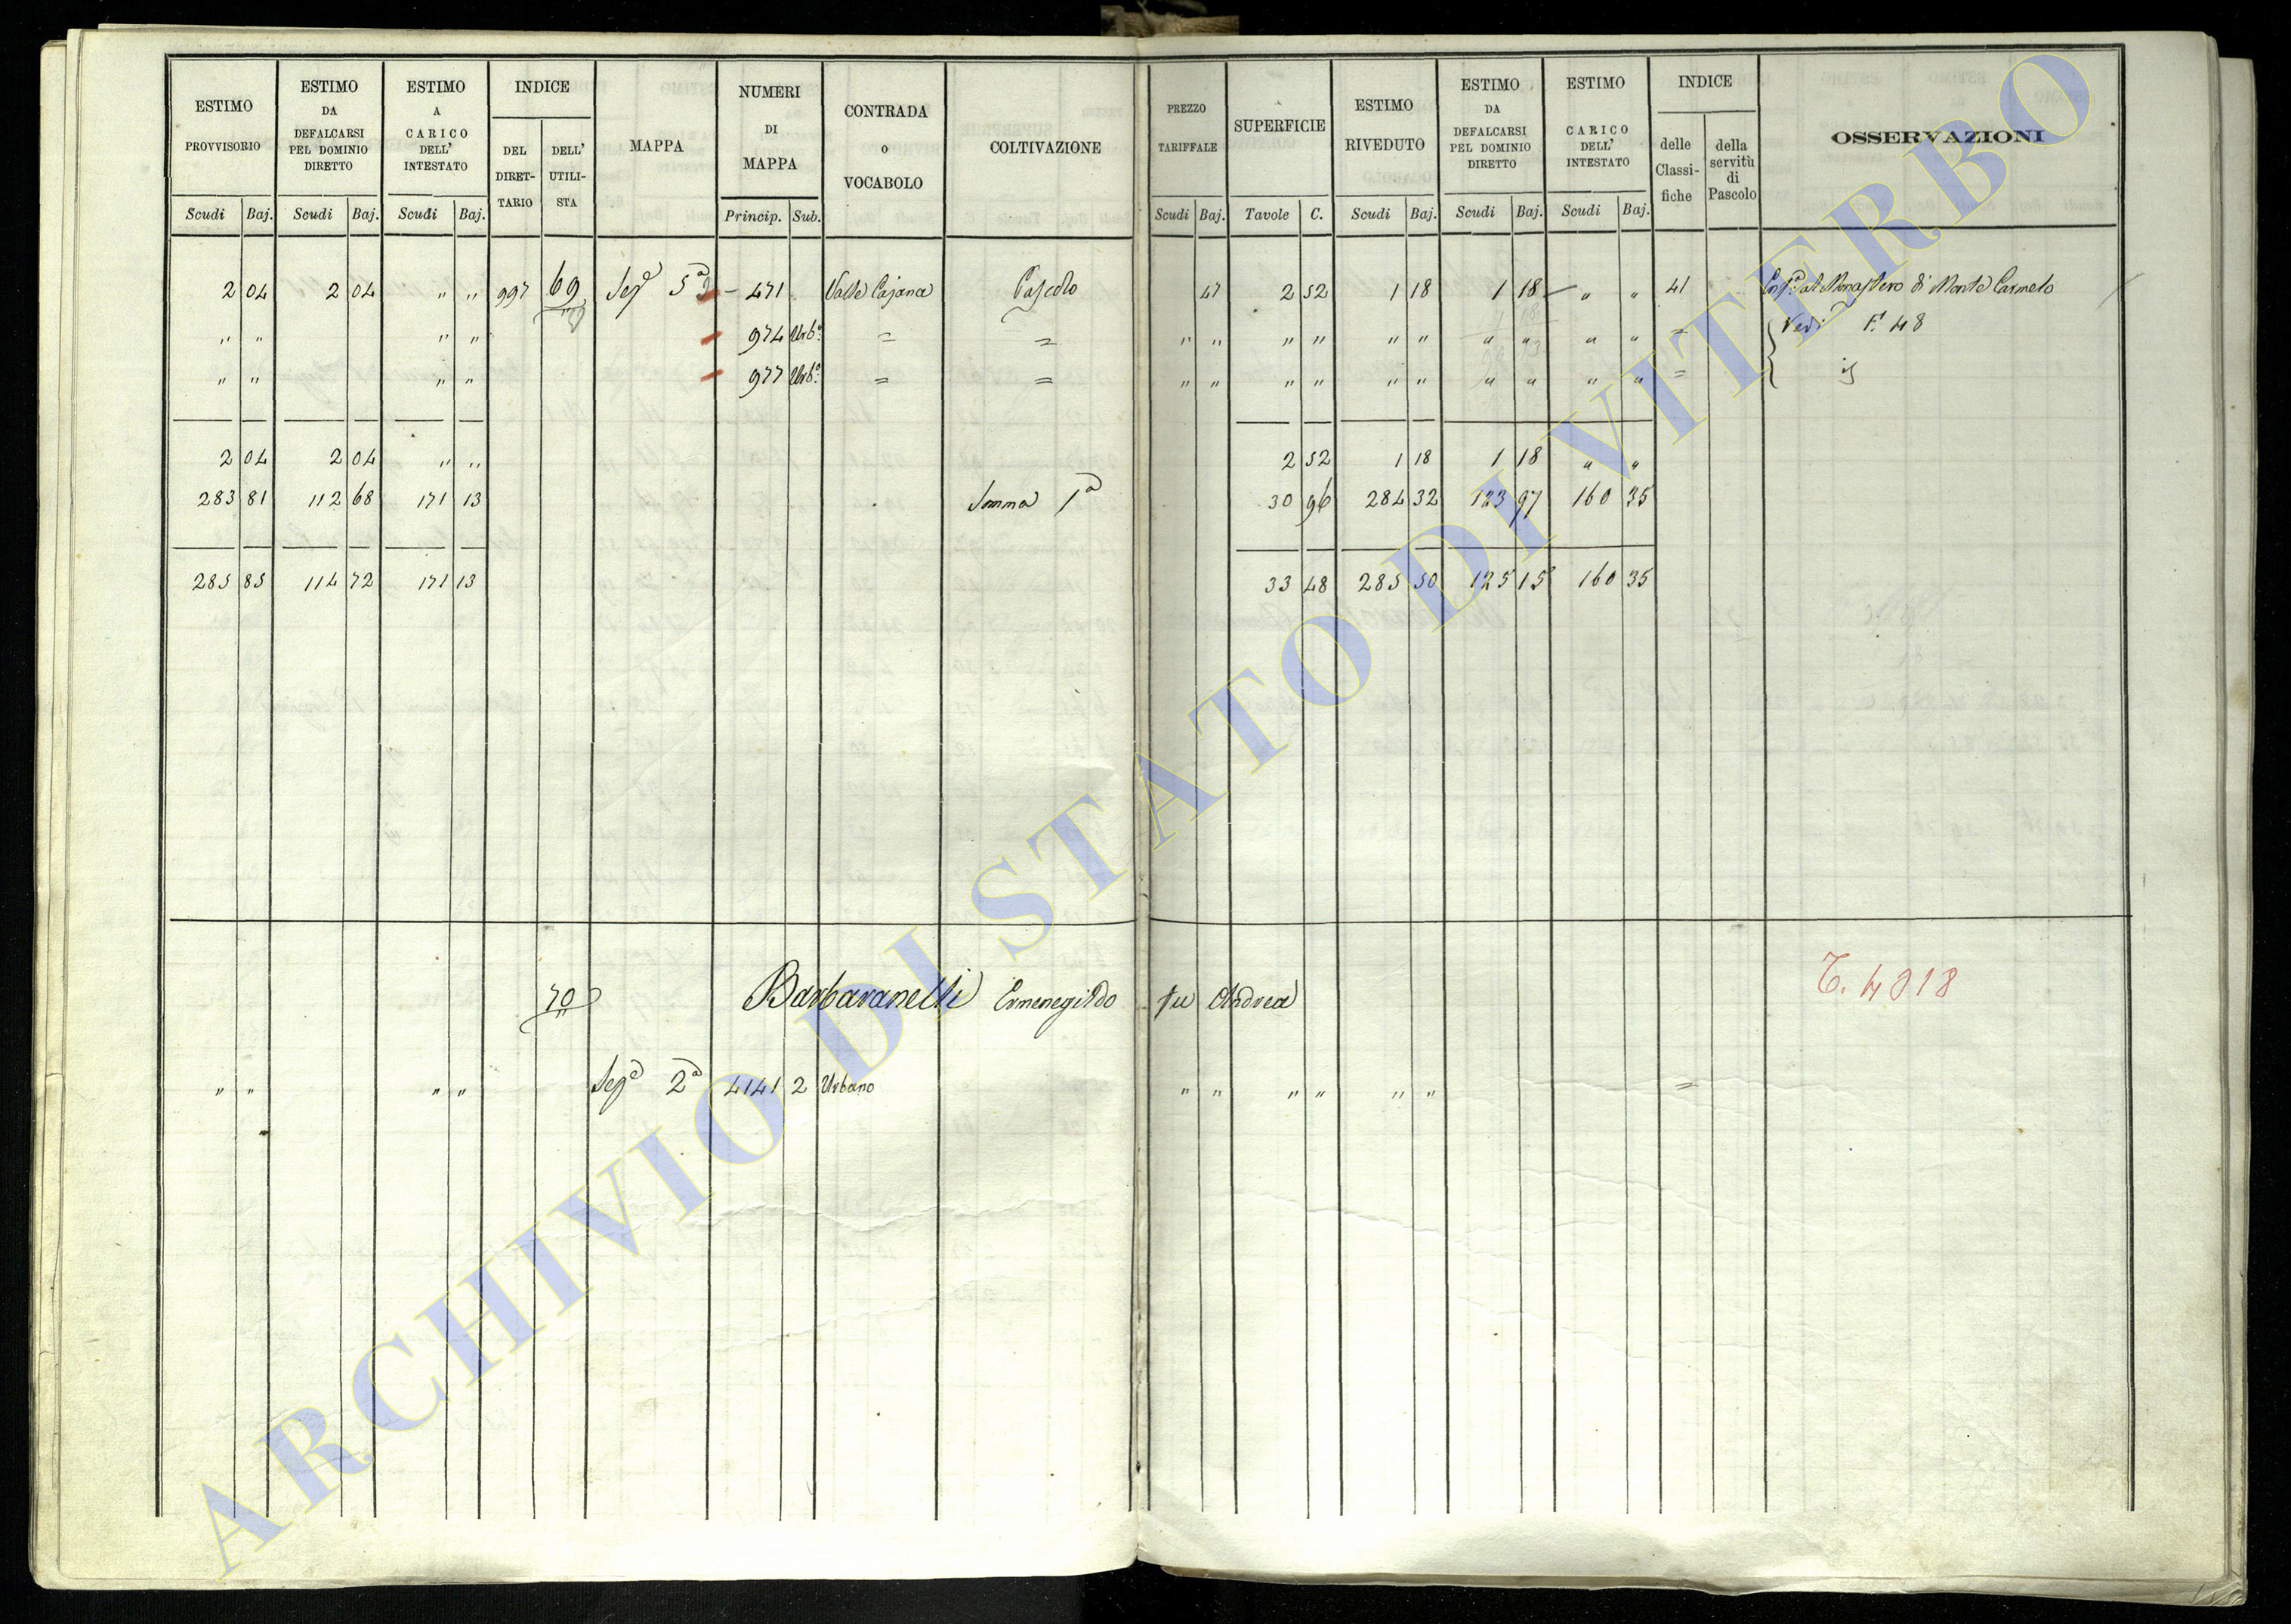 ESTIMO PROVVISORIO | ESTIMO DA DEFALCARSI PEL DOMINIO DIRETTO | ESTIMO A CARICO DELL' INTESTATO | INDICE DEL DIRET-TARIO | DELL' UTILI-STA | MAPPA | NUMERI DI MAPPA | CONTRADA O VOCABOLO | COLTIVAZIONE | PREZZO TARIFFALE | SUPERFICIE | ESTIMO RIVEDUTO | ESTIMO DA DEFALCARSI PEL DOMINIO DIRETTO | ESTIMO A CARICO DELL' INTESTATO | INDICE delle Classi-fiche | della servitù di Pascolo | OSSERVAZIONI
Scudi | Baj. | Scudi | Baj. | Scudi | Baj. | Princip. | Sub. | Scudi | Baj. | Tavole | C. | Scudi | Baj. | Scudi | Baj. | Scudi | Baj.
2 | 04 | 2 | 04 | " | " | 997 | 69 | Sez.e 5a | 471 | Valle Cajana | Pascolo | 47 | 2 | 52 | 1 | 18 | 1 | 18 | " | " | 41 | al Monastero di Monte Carmelo
" | " | " | " | 974 | Urb.o | = | = | " | " | " | " | " | " | " | " | " | " | = | Vedi F. 48
" | " | " | " | 977 | Urb.o | = | = | " | " | " | " | " | " | " | " | " | " | = | id
2 | 04 | 2 | 04 | " | " | 2 | 52 | 1 | 18 | 1 | 18 | " | "
283 | 81 | 112 | 68 | 171 | 13 | Somma 1a | 30 | 96 | 284 | 32 | 123 | 97 | 160 | 35
285 | 85 | 114 | 72 | 171 | 13 | 33 | 48 | 285 | 50 | 125 | 15 | 160 | 35
70 | Barbaranelli Ermenegildo fu Andrea | T. 4018
" | " | " | " | Sez.e 2a | 4141 | 2 | Urbano | " | " | " | " | " | " | =
ARCHIVIO DI STATO DI VITERBO